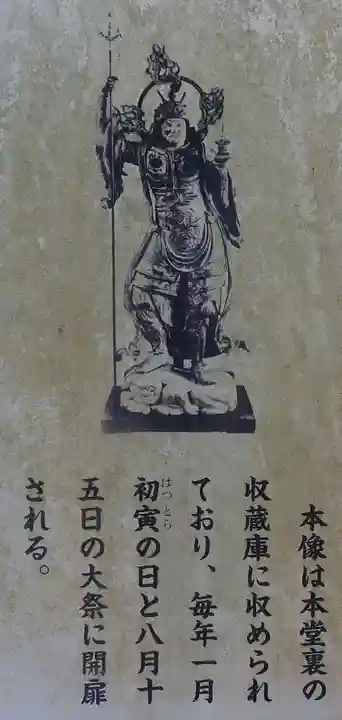 本像は本堂裏の
収蔵庫に収められ
ており、毎年一月
初寅の日と八月十
はつとら
五日の大祭に開扉
される。